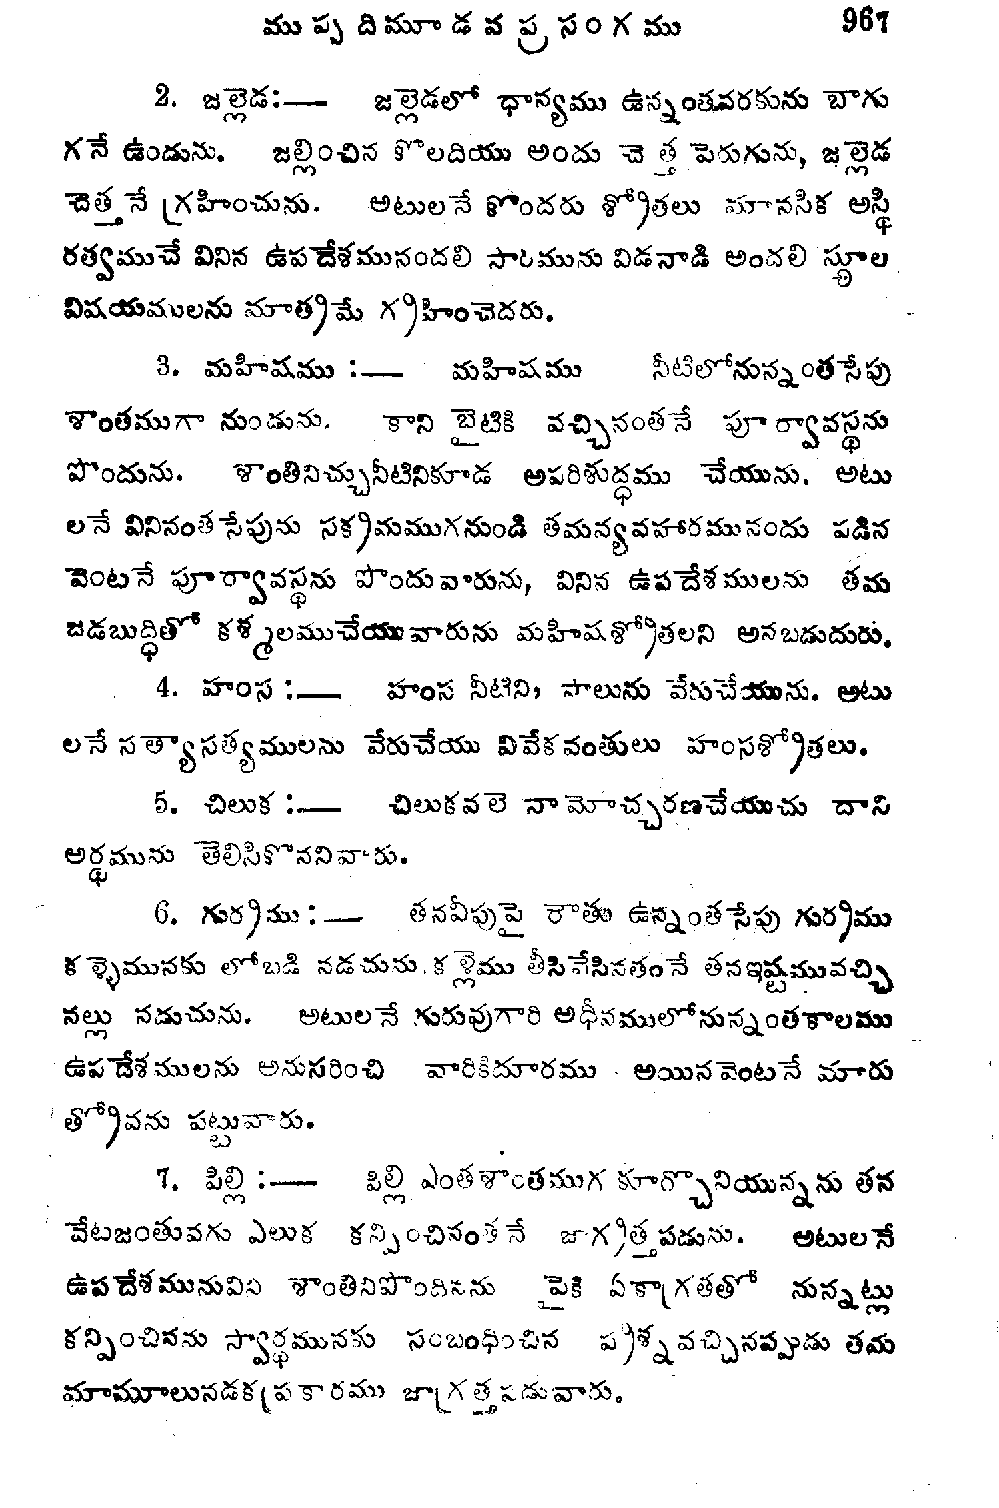 ముప్పదిమూడవప్రసంగము 967
2. జల్లెడ:— జల్లెడలో ధాన్యము ఉన్నంతవరకును బాగు
గనే ఉండును. జల్లించిన కొలదియు అందు చెత్త పెరుగును, జల్లెడ
చెత్తనే గ్రహించును. అటులనే కొందరు శ్రోతలు మానసిక అస్థి
రత్వముచే వినిన ఉపదేశమునందలి సారమును విడనాడి అందలి స్థూల
విషయములను మాత్రమే గ్రహించెదరు.
3. మహిషము :— మహిషము నీటిలోనున్నంతసేపు
శాంతముగా నుండును. కాని బైటికి వచ్చినంతనే పూర్వావస్థను
పొందును. శాంతినిచ్చునీటినికూడ అపరిశుద్ధము చేయును. అటు
లనే వినినంతసేపును సక్రమముగనుండి తమన్యవహారమునందు పడిన
వెంటనే పూర్వావస్థను పొందువారును, వినిన ఉపదేశములను తమ
జడబుద్ధితో కళ్మలముచేయువారును మహిషశ్రోతలని అనబడుదురు.
4. హంస :— హంస నీటిని, పాలును వేరుచేయును. అటు
లనే సత్యాసత్యములను వేరుచేయు వివేకవంతులు హంసశ్రోతలు.
5. చిలుక :— చిలుకవలె నామోచ్చరణచేయుచు దాని
అర్థమును తెలిసికొననివారు.
6. గుర్రము :— తనవీపుపై రౌతు ఉన్నంతసేపు గుర్రము
కళ్ళెమునకు లోబడి నడచును. కళ్లెము తీసివేసినతంనే తనఇష్టమువచ్చి
నట్లు నడుచును. అటులనే గురువుగారి అధీనములోనున్నంతకాలము
ఉపదేశములను అనుసరించి వారికిదూరము అయినవెంటనే మారు
త్రోవను పట్టువారు.
7. పిల్లి :— పిల్లి ఎంతశాంతముగ కూర్చొనియున్నను తన
వేటజంతువగు ఎలుక కన్పించినంతనే జాగ్రత్తపడును. అటులనే
ఉపదేశమునువిని శాంతినిపొందినను పైకి ఏకాగ్రతతో నున్నట్లు
కన్పించినను స్వార్థమునకు సంబంధించిన ప్రశ్న వచ్చినప్పుడు తమ
మామూలునడకప్రకారము జాగ్రత్తపడువారు.